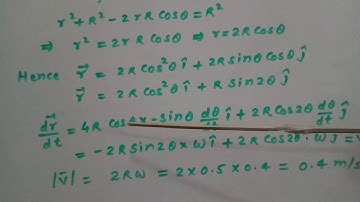 r² + R² - 2rR cosθ = R²
⇒ r² = 2rR cosθ ⇒ r = 2R cosθ
Hence r⃗ = 2R cos²θ î + 2R sinθ cosθ ĵ
r⃗ = 2R cos²θ î + R sin2θ ĵ
dr⃗/dt = 4R cosθ x - sinθ dθ/dt î + 2R cos2θ dθ/dt ĵ
= -2R sin2θ × ω î + 2R cos2θ · ω ĵ =
|v̄| = 2Rω = 2 × 0.5 × 0.4 = 0.4 m/s